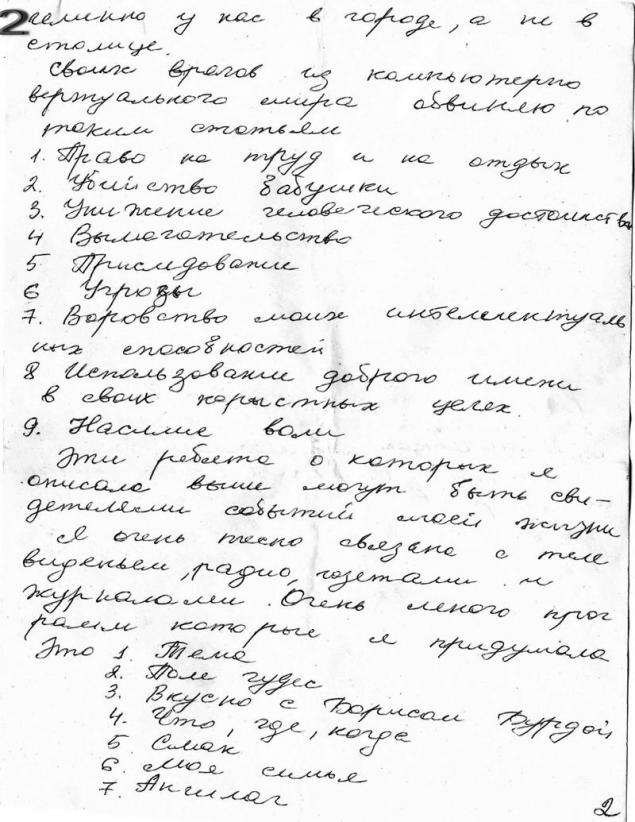 2 именно у нас в городе, а не в
столице.
Своих врагов из компьютерно
вертуального мира обвиняю по
таким статьям
1. Право на труд и на отдых
2. Убийство бабушки
3. Унижение человеческого достоинства
4 Вымагательство
5 Приследование
6 Угрозы
7. Воровство моих интеллектуаль
ных способностей
8 Использование доброго имени
в своих корыстных целех.
9. Насилие воли
Эти ребята о которых я
описала выше могут быть сви-
детелями событий моей жизни
Я очень тесно связана с теле
виденьем, радио, газетами и
журналами. Очень много прог
рамм которые я придумала
Это 1. Тема
2. Поле чудес
3. Вкусно с Борисом Бурдой
4. Что, где, когда
5. Смак
6. Моя семья
7. Аншлаг
2